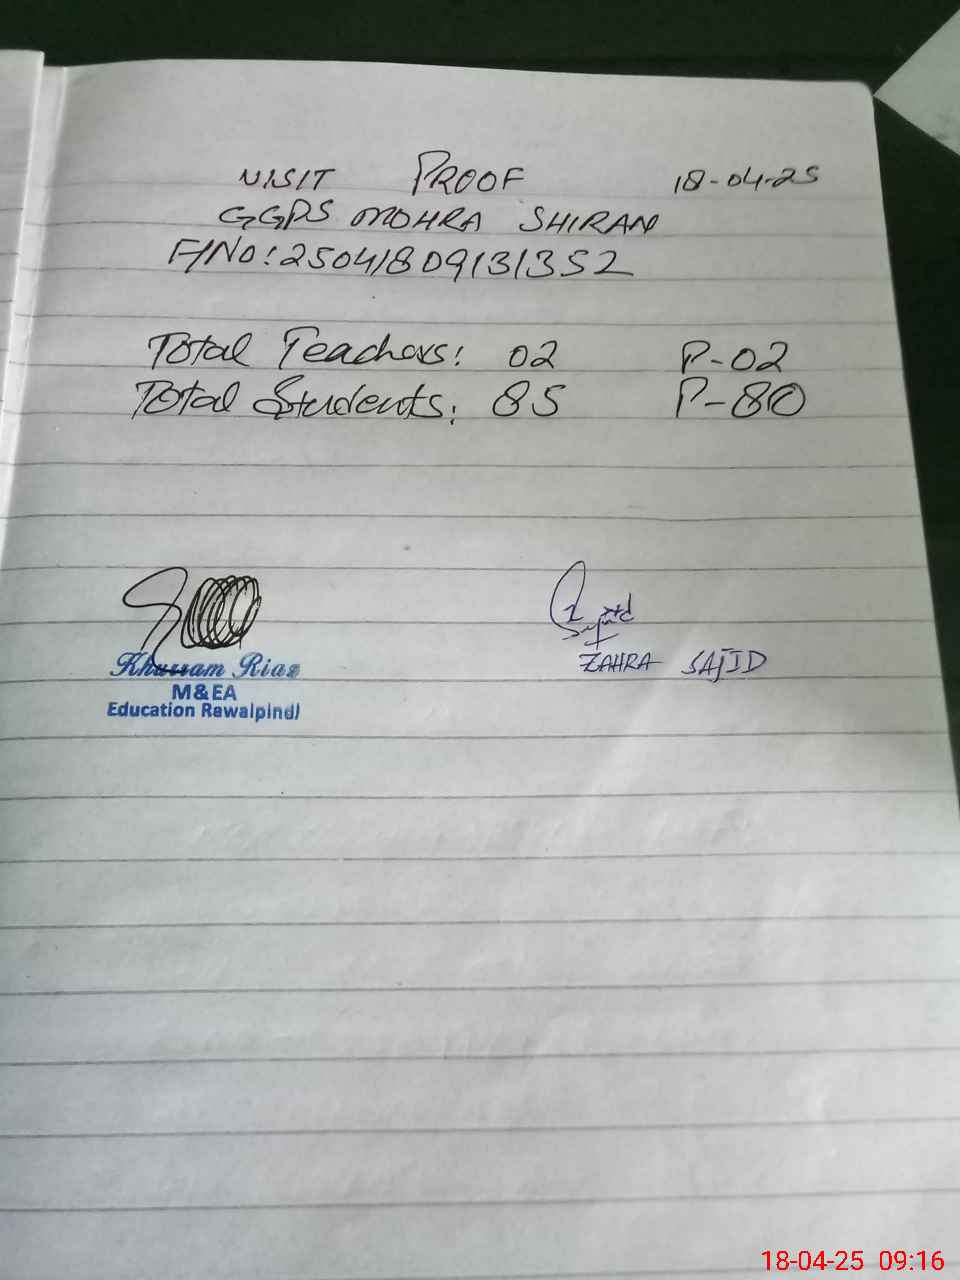 VISIT PROOF 18-04-25
GGPS MOHRA SHIRAN
F/NO: 25041809131352
Total Teachers: 02 P-02
Total Students: 85 P-80
Sajid
Khurram Riaz
M&EA
Education Rawalpindi
ZAHRA SAJID
18-04-25 09:16